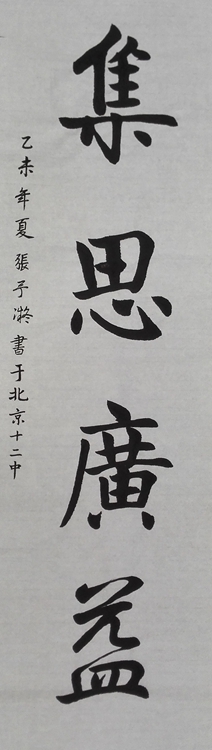 集思廣益
乙未年夏張予凝書于北京十二中